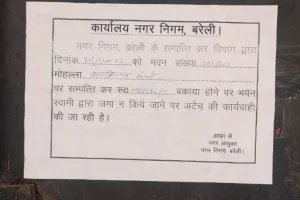 कार्यालय नगर निगम, बरेली।
नगर निगम, बरेली के सम्पत्ति कर विभाग द्वारा
दिनांक को भवन संख्या
मोहल्ला
पर सम्पत्ति कर रू0 बकाया होने पर भवन
स्वामी द्वारा जमा न किये जाने पर अटैच की कार्यवाही
की जा रही है।
आज्ञा से
नगर आयुक्त
नगर निगम, बरेली।